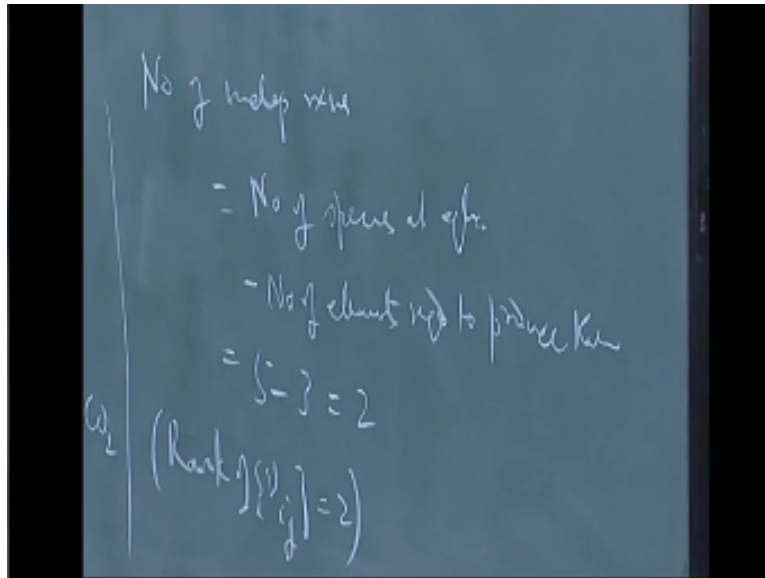 No of indep rxns
= No of species at eqbm.
- No of elements reqd to produce them
= 5 - 3 = 2
CO2
(Rank of {νij} = 2)